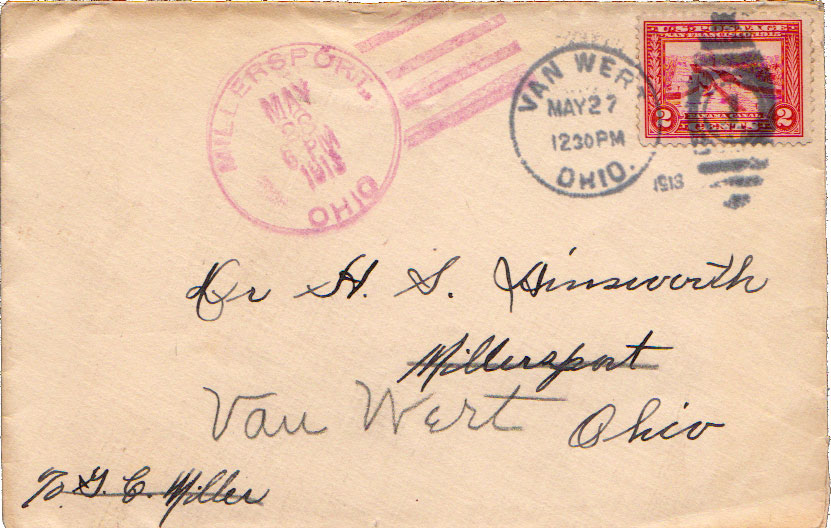 U.S. POSTAGE
SAN FRANCISCO 1915
2 2
VAN WERT
MAY 27
1230 PM
OHIO.
1913
MILLERSPORT
MAY
6 PM
1913
OHIO
Dr H. S. Ainsworth
Millersport
Van Wert Ohio
To G. C. Miller